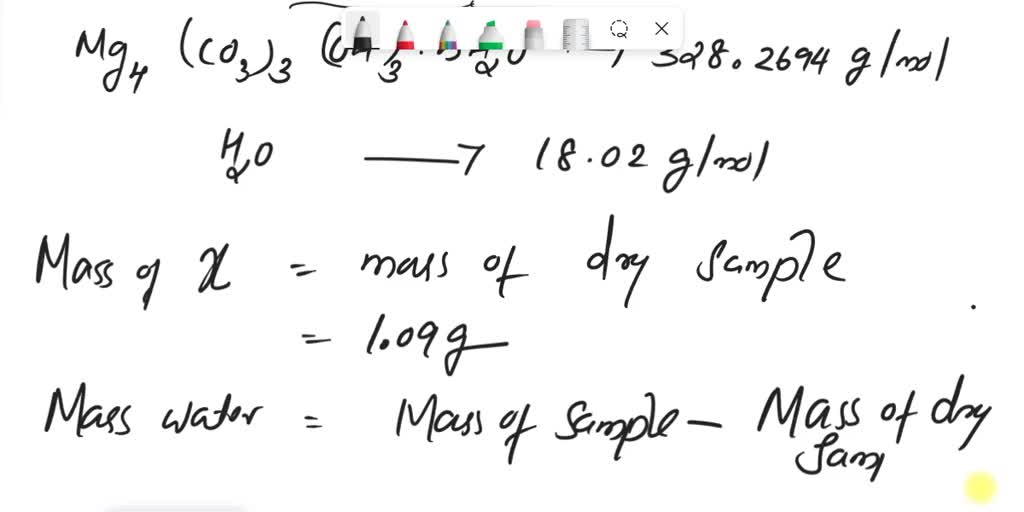 Mg4 (CO3)3 328.2694 g/mol
H2O → 18.02 g/mol
Mass of x = mass of dry sample
= 1.09g
Mass water = Mass of sample - Mass of dry
Sam